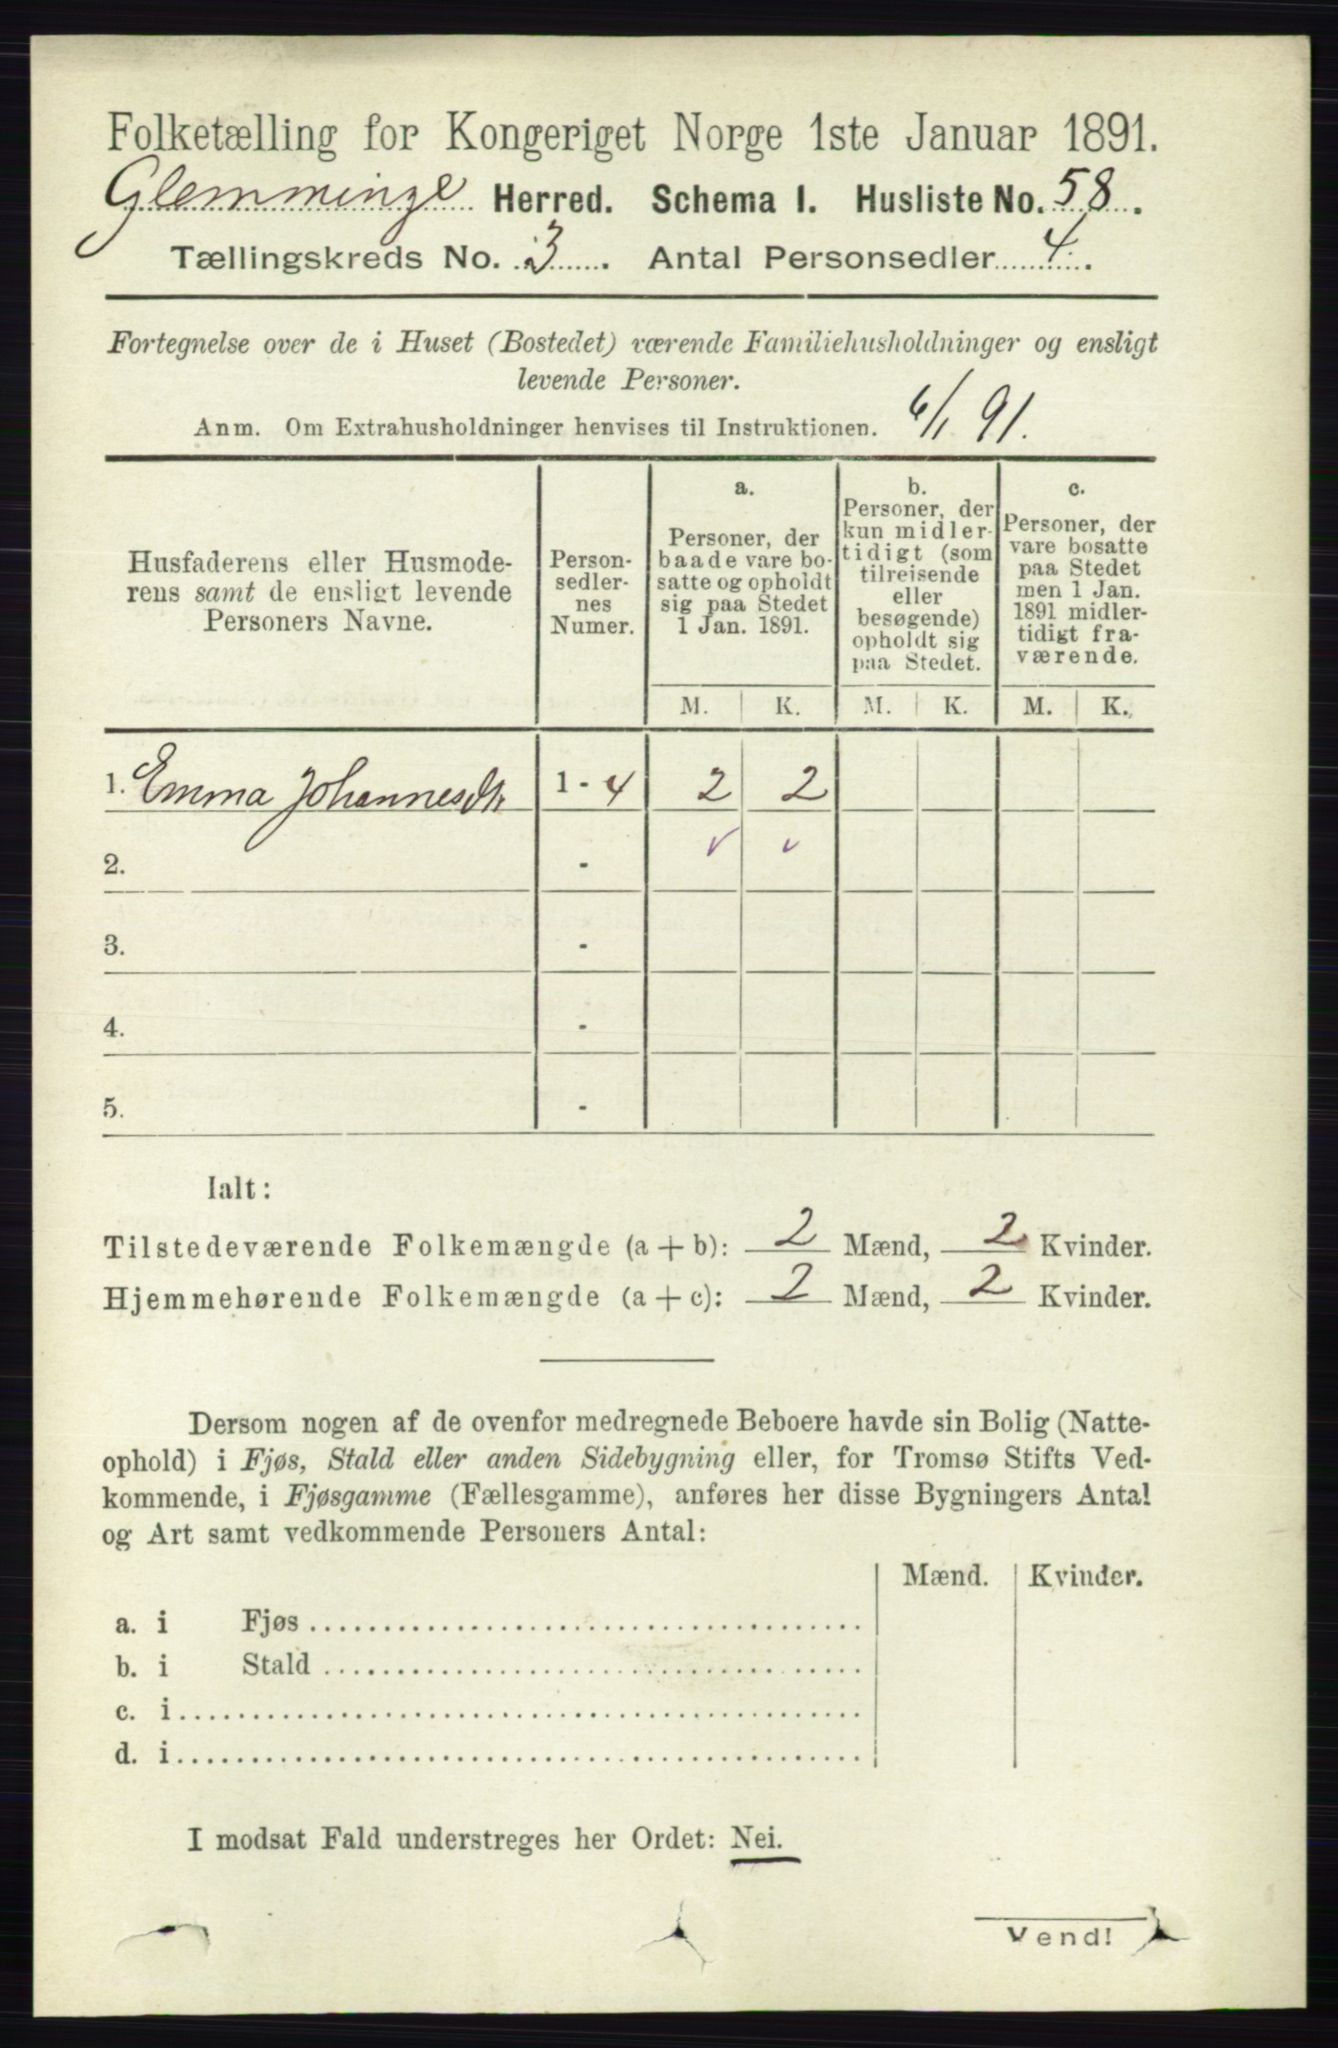 Folketælling for Kongeriget Norge 1ste Januar 1891.
Glemminge Herred. Schema I. Husliste No. 58.
Tællingskreds No. 3. Antal Personsedler 4.
Fortegnelse over de i Huset (Bostedet) værende Familiehusholdninger og ensligt
levende Personer.
Anm. Om Extrahusholdninger henvises til Instruktionen. 6/1 91.
Husfaderens eller Husmode-
rens samt de ensligt levende
Personers Navne.
Person-
sedler-
nes
Numer.
a.
Personer, der
baade vare bo-
satte og opholdt
sig paa Stedet
1 Jan. 1891.
b.
Personer, der
kun midler-
tidigt (som
tilreisende
eller
besøgende)
opholdt sig
paa Stedet.
c.
Personer, der
vare bosatte
paa Stedet
men 1 Jan.
1891 midler-
tidigt fra-
værende.
M. K. M. K. M. K.
1. Emma Johannesdtr 1 - 4 2 2
2. -
3. -
4. -
5. -
Ialt:
Tilstedeværende Folkemængde (a + b): 2 Mænd, 2 Kvinder.
Hjemmehørende Folkemængde (a + c): 2 Mænd, 2 Kvinder.
Dersom nogen af de ovenfor medregnede Beboere havde sin Bolig (Natte-
ophold) i Fjøs, Stald eller anden Sidebygning eller, for Tromsø Stifts Ved-
kommende, i Fjøsgamme (Fællesgamme), anføres her disse Bygningers Antal
og Art samt vedkommende Personers Antal:
Mænd. Kvinder.
a. i Fjøs
b. i Stald
c. i
d. i
I modsat Fald understreges her Ordet: Nei.
Vend!